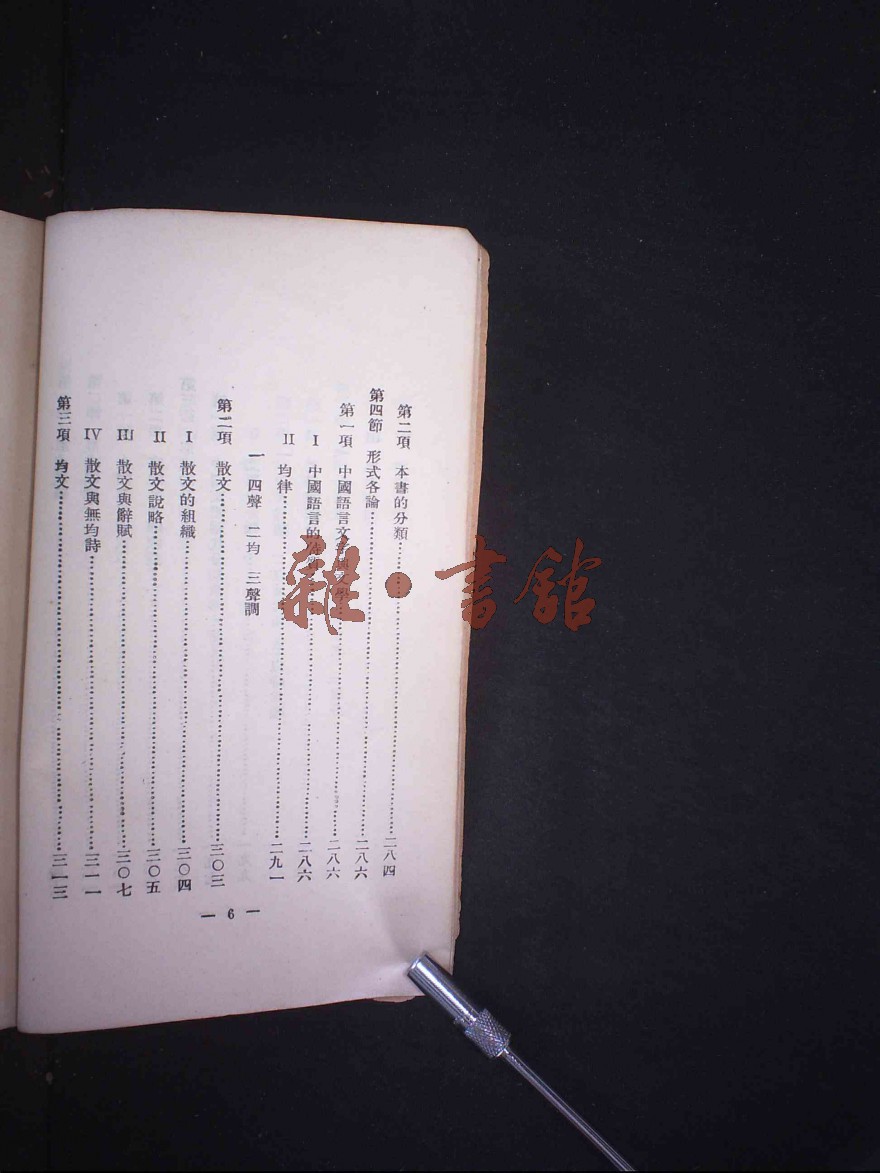 第二項 本書的分類……二八四
第四節 形式各論……二八六
第一項 中國語言文 文學……二八六
I 中國語言的 ……二八六
II 均律……二九一
一 四聲 二 均 三 聲調
第二項 散文……三〇三
I 散文的組織……三〇四
II 散文說略……三〇五
III 散文與辭賦……三〇七
IV 散文與無均詩……三一一
第三項 均文……三一三
— 6 —
雜·書館